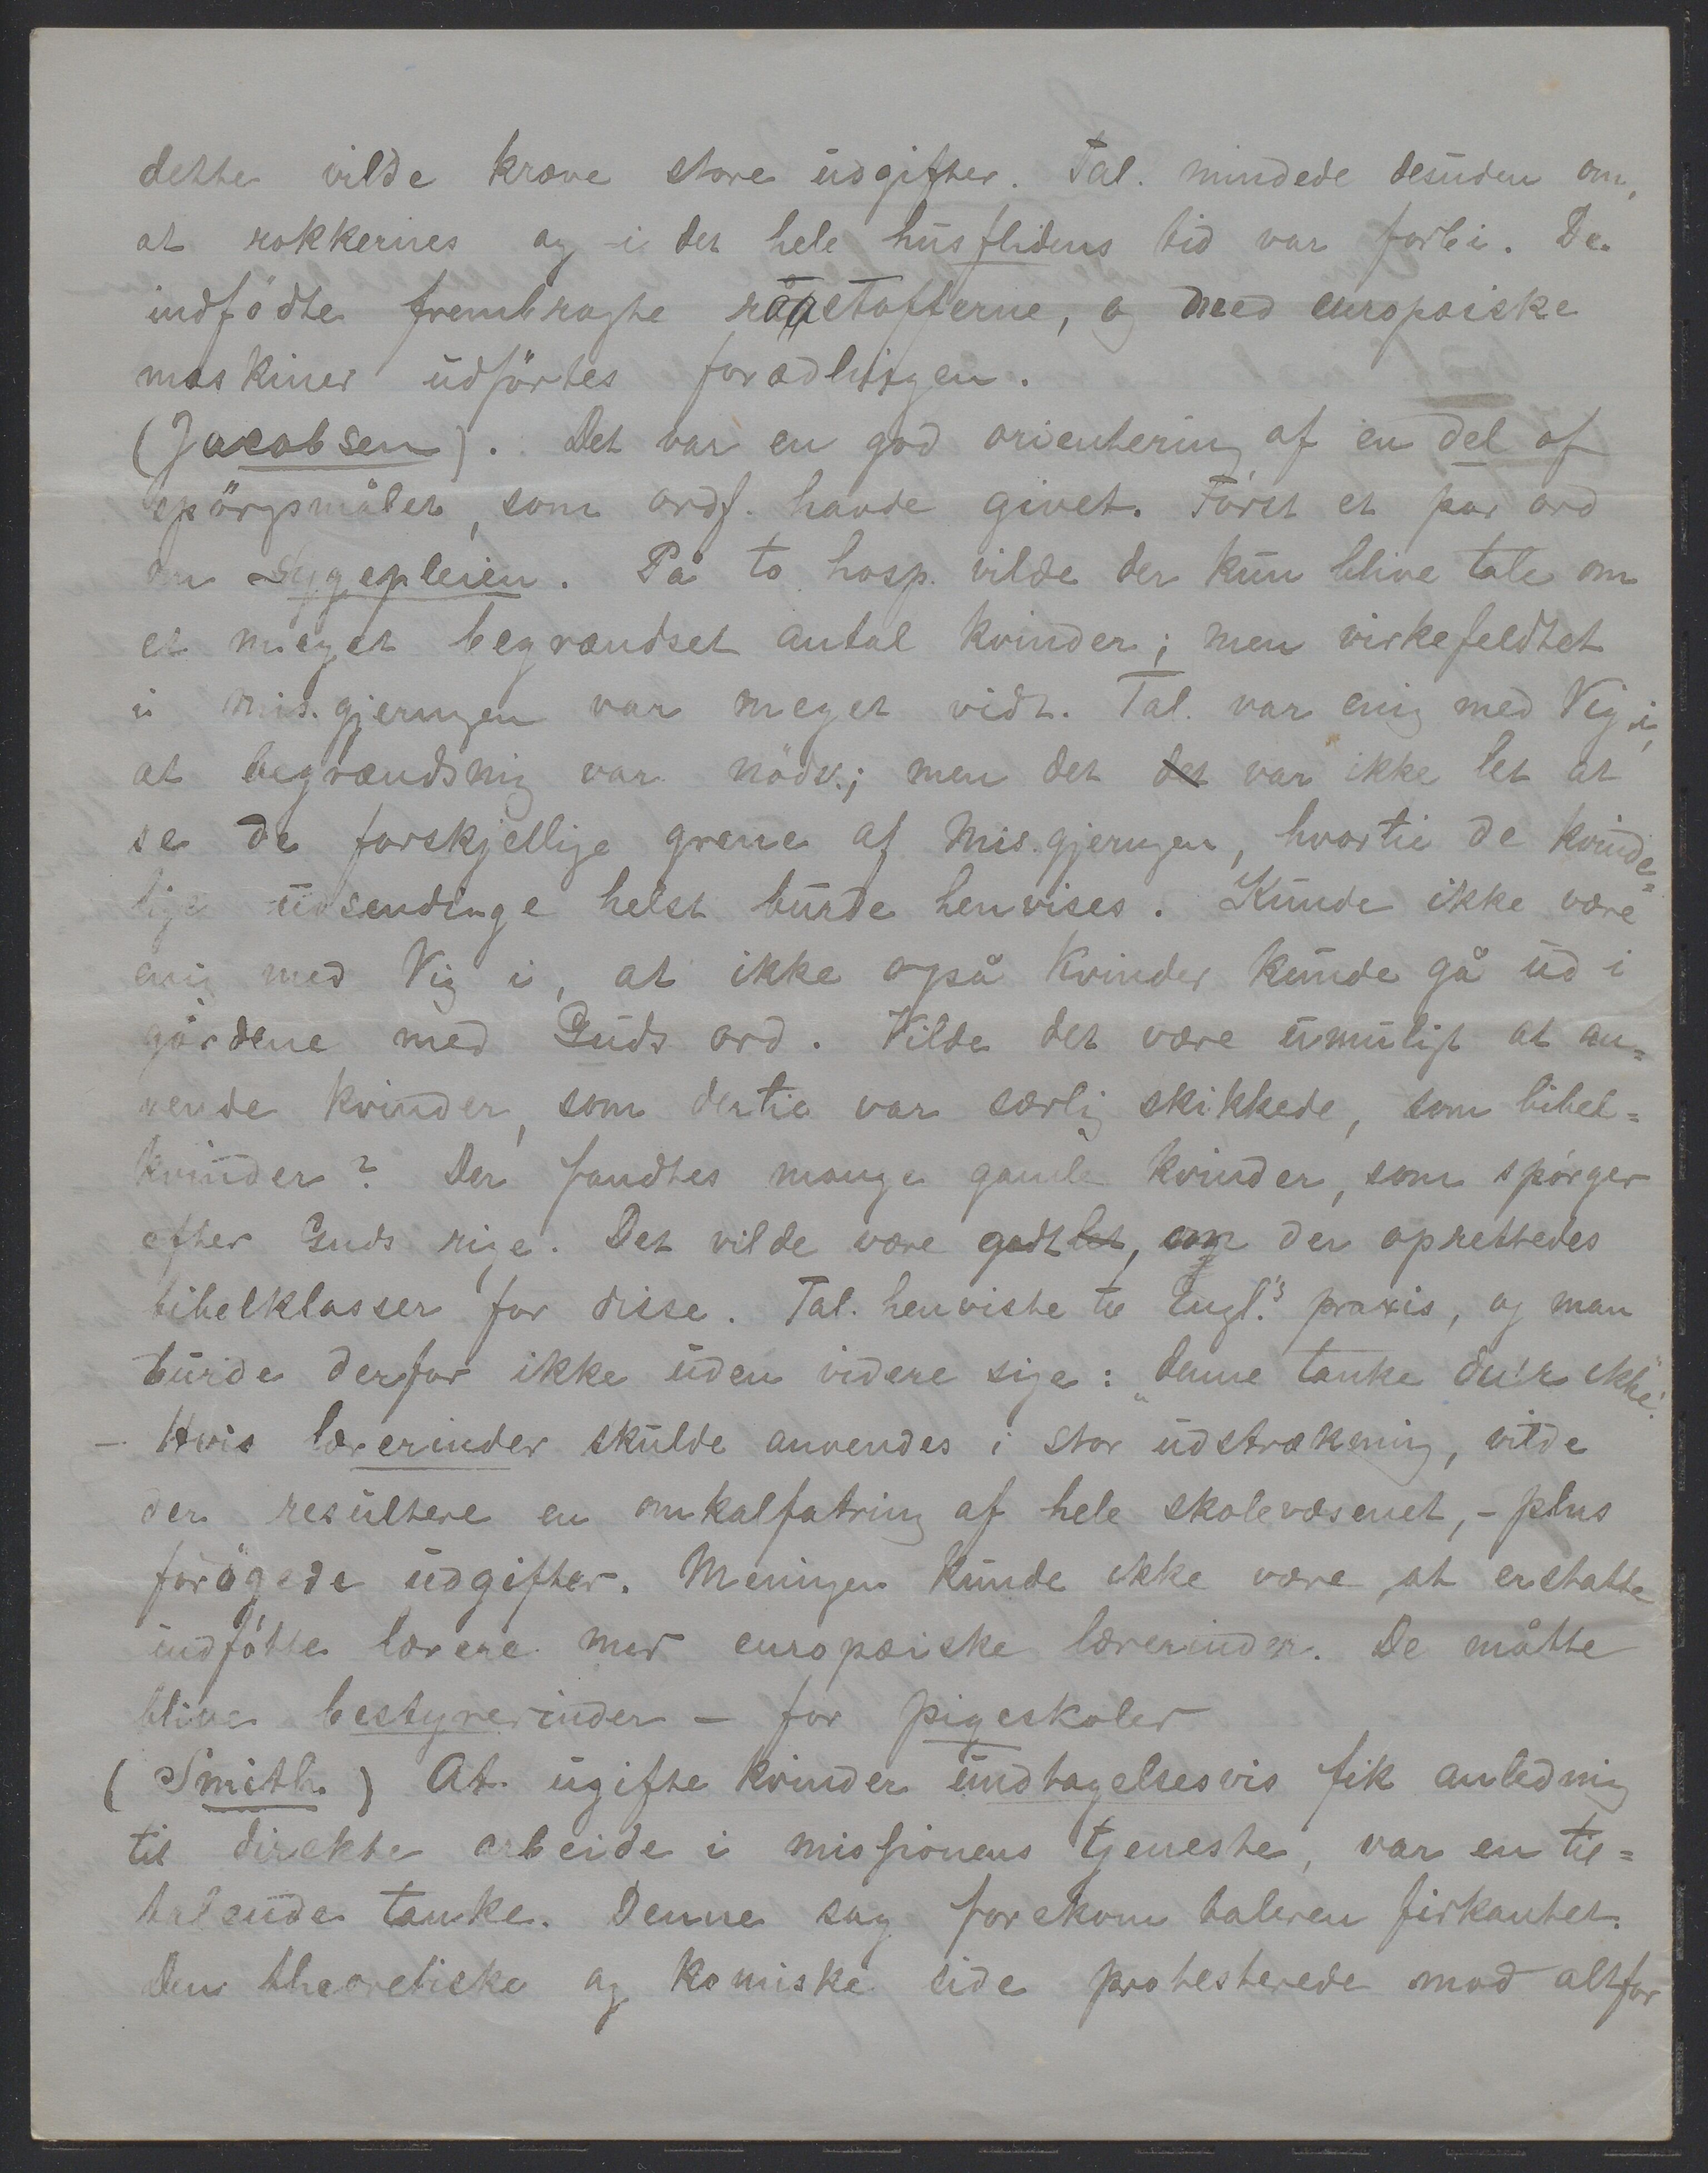 dette vilde kræve store udgifter. Tal. mindede desuden om,
at rokkernes og i det hele husflidens tid var forbi. De
indfödte frembragte råstofferne, og med europæiske
maskiner udförtes forædlingen.
(Jacobsen). Det var en god orientering af en del af
spörgsmålet, som ordf. havde givet. Först et par ord
om Sygepleien. På to hosp. vilde der kun blive tale om
et meget begrændset antal kvinder; men virkefeldtet
i mis.gjerningen var meget vidt. Tal. var enig med Vig i,
at begrændsning var nödv.; men det det var ikke let at
se de forskjellige grene af Mis.gjerningen, hvortil de kvinde=
lige udsendinge helst burde henvises. Kunde ikke være
enig med Vig i, at ikke også Kvinder kunde gå ud i
gårdene med Guds ord. Vilde det være umuligt at an=
vende kvinder, som dertil var særlig skikkede, som bibel=
kvinder? Der fandtes mange gamle kvinder, som spörger
efter Guds rige. Det vilde være godt let, om der oprettedes
bibelklasser for disse. Tal. henviste til Engl.'s praxis, og man
burde derfor ikke uden videre sige: "denne tanke du'r ikke".
- Hvis lærerinder skulde anvendes i stor udstrækning, vilde
der resultere en omkalfatring af hele skolevæsenet, - plus
forögede udgifter. Meningen kunde ikke være at erstatte
indfötte lærere med europæiske lærerinder. De måtte
blive bestyrerinder - for pigeskoler
(Smith.) At ugifte kvinder undtagelsesvis fik anledning
til direkte arbeide i missionens tjeneste, var en til=
talende tanke. Denne sag forekom taleren firkantet.
Den theoretiske og komiske side protesterede mod altfor